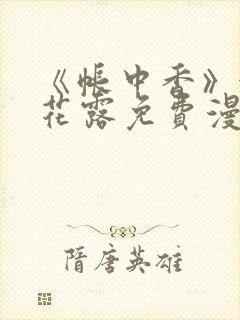 《帐中香》
花露免费漫
隋唐英雄